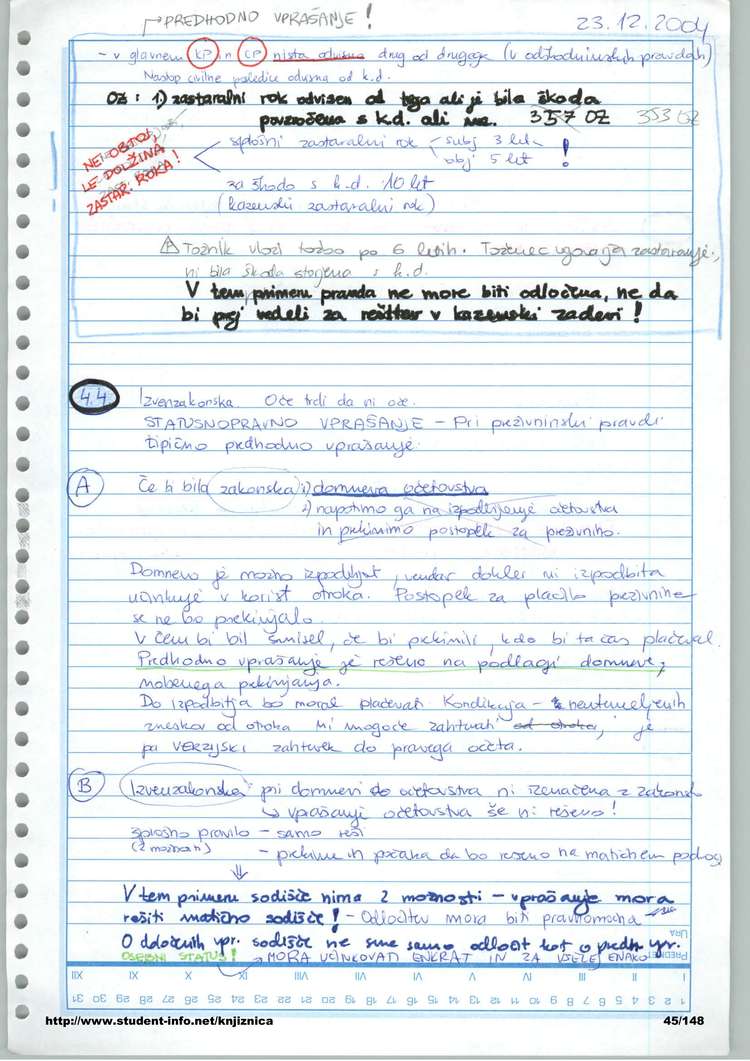 PREDHODNO VPRAŠANJE!
23.12.2004
- v glavnem KP in CP nista odvisna drug od drugega (v odškodninskih pravdah)
Nastop civilne posledice odvisna od k.d.
OZ: 1) zastaralni rok odvisen od tega ali je bila škoda
povzročena s k.d. ali ne. 357 OZ 353 OZ
NE OBSTOJ,
LE DOLŽINA
ZASTAR. ROKA!
splošni zastaralni rok subj 3 let
obj 5 let !
za škodo s k.d. 10 let
(kazenski zastaralni rok)
P Tožnik vloži tožbo po 6 letih. Toženec ugovarja zastaranje,
ni bila škoda storjena s k.d.
V tem primeru pravda ne more biti odločena, ne da
bi prej vedeli za rešitev v kazenski zadevi!
4.4. Izvenzakonska. Oče trdi da ni oče.
STATUSNOPRAVNO VPRAŠANJE - Pri preživninski pravdi
tipično predhodno vprašanje.
A Če bi bila zakonska 1) domneva očetovstva
2) napotimo ga na izpodbijanje očetovstva
in prekinimo postopek za preživnino.
Domnevo je možno izpodbijat, vendar dokler ni izpodbita
učinkuje v korist otroka. Postopek za plačilo preživnine
se ne bo prekinjalo.
V čem bi bil smisel, če bi prekinili, kdo bi ta čas plačeval.
Predhodno vprašanje je rešeno na podlagi domneve,
nobenega prekinjanja.
Do izpodbitja bo moral plačevati. Kondikcija - neutemeljenih
zneskov od otroka ni mogoče zahtevati od otroka, je
pa VERZIJSKI zahtevek do pravega očeta.
B Izvenzakonska pri domnevi do očetovstva ni izenačena z zakonsko
↳ vprašanje očetovstva še ni rešeno!
splošno pravilo - samo reši
(2 možnosti) - prekine in počaka da bo rešeno na matičnem področ
V tem primeru sodišče nima 2 možnosti - vprašanje mora
rešiti matično sodišče! - Odločitev mora biti pravnomočna
O določenih vpr. sodišče ne sme samo odločit kot o predh. vpr.
OSEBNI STATUS! → MORA UČINKOVATI ENKRAT IN ZA VSELEJ ENAKO
PREDMET
URA
XII XI X IX VIII VII VI V IV III II I
31 30 29 28 27 26 25 24 23 22 21 20 19 18 17 16 15 14 13 12 11 10 9 8 7 6 5 4 3 2 1
http://www.student-info.net/knjiznica
45/148